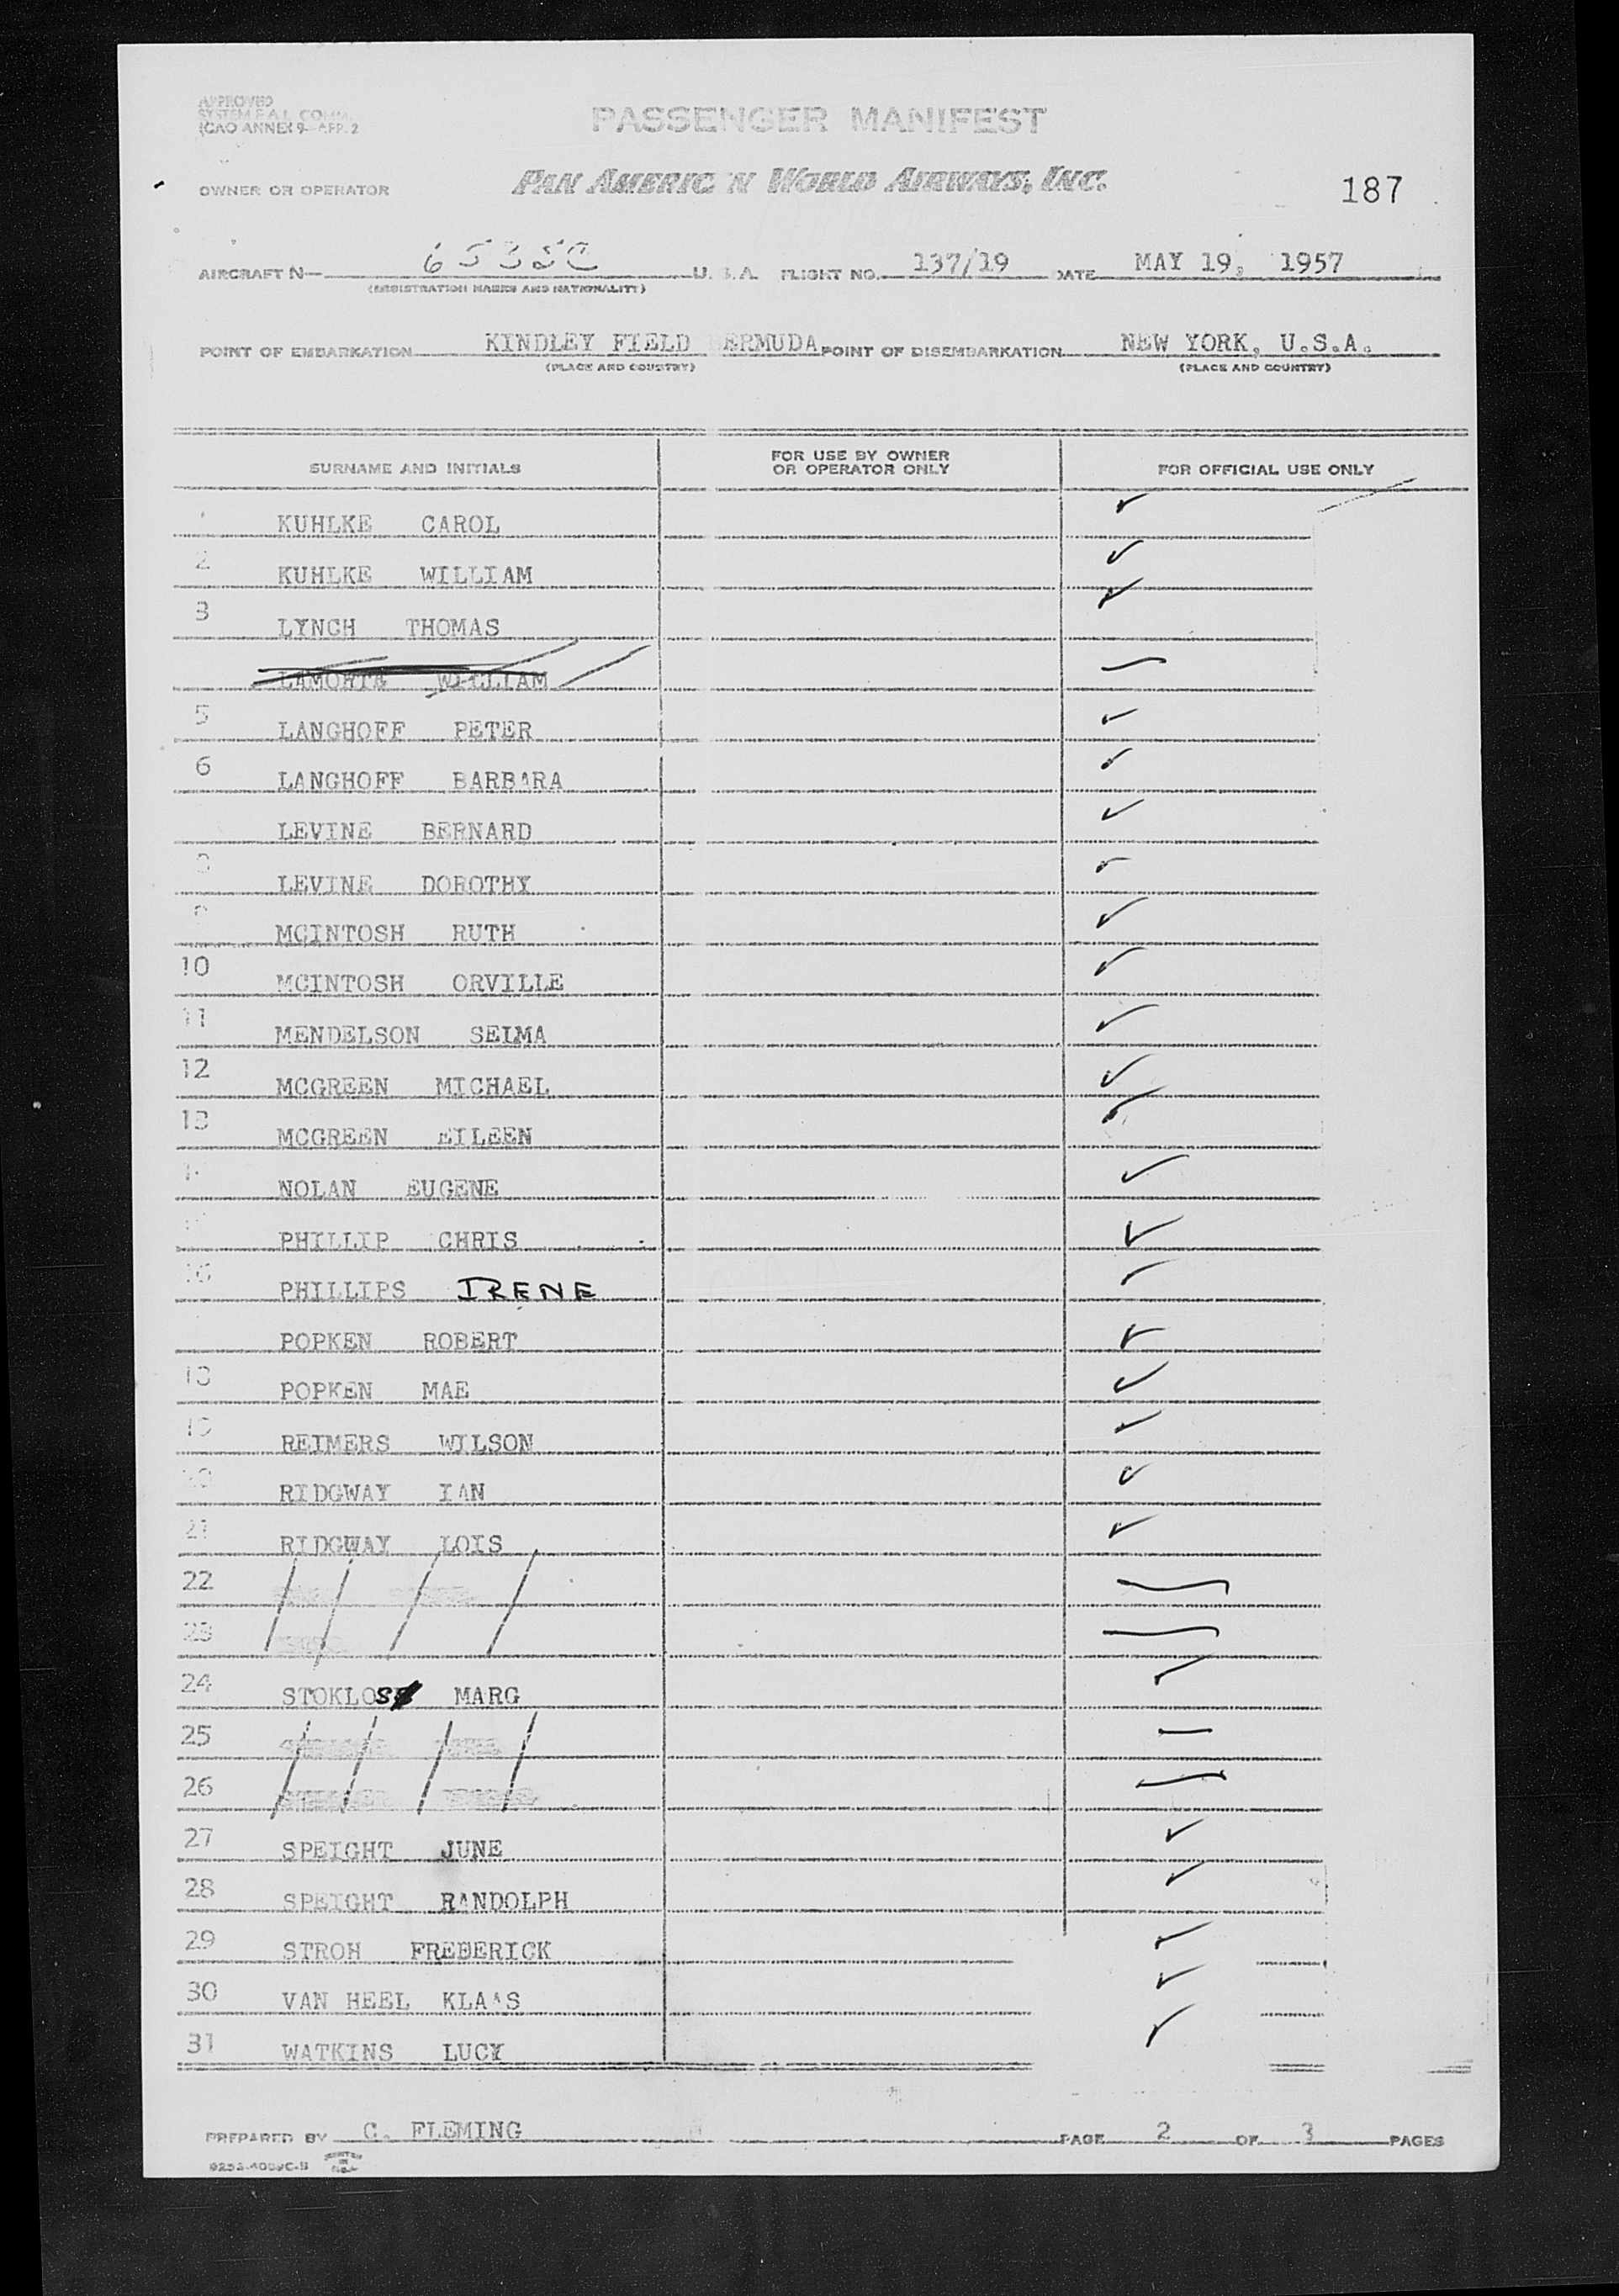 APPROVED
SYSTEM F.A.L. COMM.
ICAO ANNEX 9-APP. 2
PASSENGER MANIFEST
OWNER OR OPERATOR PAN AMERIC N WORLD AIRWAYS, INC. 187
AIRCRAFT N— U.S.A. FLIGHT NO. 137/19 DATE MAY 19, 1957
(REGISTRATION MARKS AND NATIONALITY)
POINT OF EMBARKATION KINDLEY FIELD BERMUDA POINT OF DISEMBARKATION NEW YORK, U.S.A.
(PLACE AND COUNTRY) (PLACE AND COUNTRY)
SURNAME AND INITIALS FOR USE BY OWNER OR OPERATOR ONLY FOR OFFICIAL USE ONLY
KUHLKE CAROL
2 KUHLKE WILLIAM
3 LYNCH THOMAS
LAMORTE WILLIAM
5 LANGHOFF PETER
6 LANGHOFF BARBARA
LEVINE BERNARD
LEVINE DOROTHY
MCINTOSH RUTH
10 MCINTOSH ORVILLE
11 MENDELSON SELMA
12 MCGREEN MICHAEL
13 MCGREEN EILEEN
NOLAN EUGENE
PHILLIP CHRIS
16 PHILLIPS IRENE
POPKEN ROBERT
18 POPKEN MAE
19 REIMERS WILSON
20 RIDGWAY IAN
21 RIDGWAY LOIS
22
23
24 STOKLOS MARG
25
26
27 SPEIGHT JUNE
28 SPEIGHT RANDOLPH
29 STROH FREDERICK
30 VAN HEEL KLAAS
31 WATKINS LUCY
PREPARED BY C. FLEMING PAGE 2 OF 3 PAGES